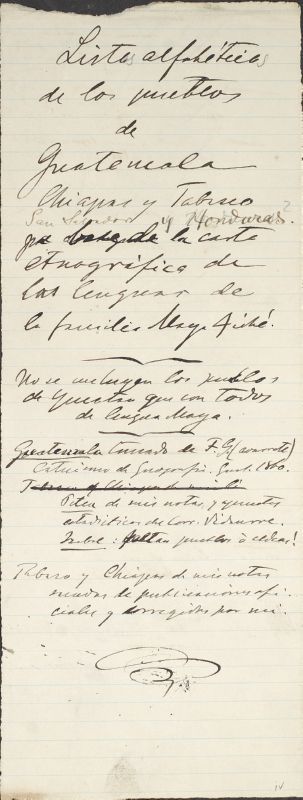 Listas alfabéticas
de los pueblos
de
Guatemala
Chiapas y Tabasco
San Salvador y Honduras ?
la carta
etnográfica de
las lenguas de
la familia Maya Qiché.
No se incluyen los pueblos
de Yucatan que son todos
de lengua Maya.
Guatemala tomado de F. G(avarrete)
Catecismo de Geografía. Guat. 1860.
Peten de mis notas y apuntes
estadísticos de Corr. Vidaurre.
Izabal: faltan pueblos ó aldeas!
Tabasco y Chiapas de mis notas
sacadas de publicaciones ofi
ciales y corregidas por mi.